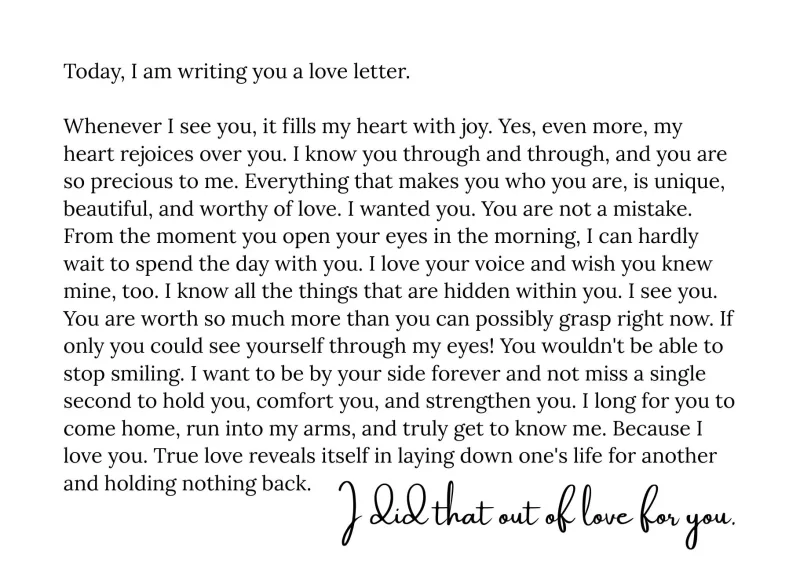 Today, I am writing you a love letter.
Whenever I see you, it fills my heart with joy. Yes, even more, my
heart rejoices over you. I know you through and through, and you are
so precious to me. Everything that makes you who you are, is unique,
beautiful, and worthy of love. I wanted you. You are not a mistake.
From the moment you open your eyes in the morning, I can hardly
wait to spend the day with you. I love your voice and wish you knew
mine, too. I know all the things that are hidden within you. I see you.
You are worth so much more than you can possibly grasp right now. If
only you could see yourself through my eyes! You wouldn't be able to
stop smiling. I want to be by your side forever and not miss a single
second to hold you, comfort you, and strengthen you. I long for you to
come home, run into my arms, and truly get to know me. Because I
love you. True love reveals itself in laying down one's life for another
and holding nothing back.
I did that out of love for you.